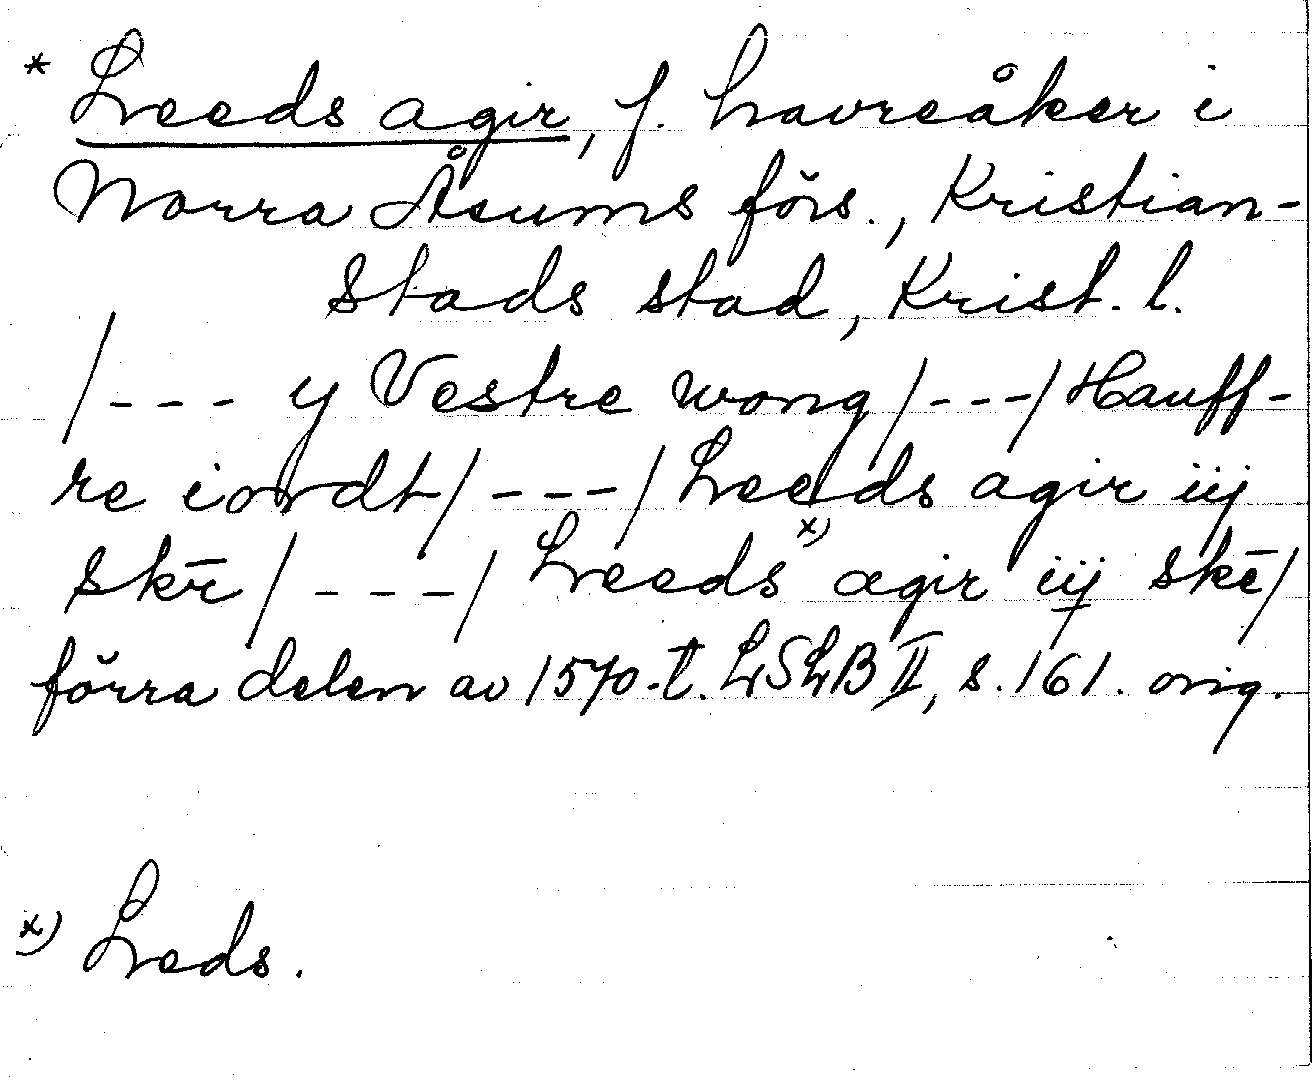 * Leeds agir, f. havreåker i
Norra Åsums förs., Kristian-
stads stad, Krist. l.
/--- y Vestre wong/---/Hauff-
re iordt/---/Leeds agir iij
skr̄/---/Leeds x) agir iij skē/
förra delen av 1570-t. LSLB II, s. 161. orig.
x) Leds.